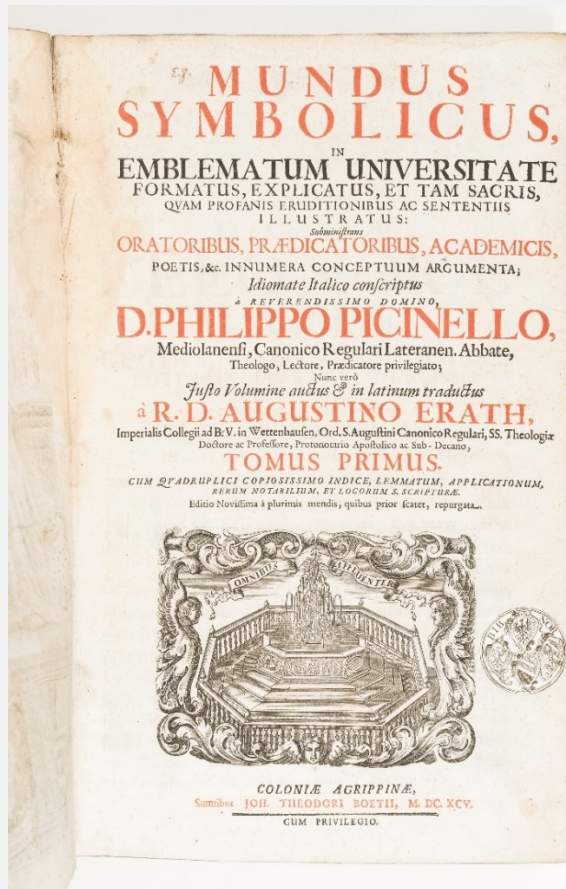 MUNDUS
SYMBOLICUS,
IN
EMBLEMATUM UNIVERSITATE
FORMATUS, EXPLICATUS, ET TAM SACRIS,
QVAM PROFANIS ERUDITIONIBUS AC SENTENTIIS
ILLUSTRATUS:
Subministrans
ORATORIBUS, PRÆDICATORIBUS, ACADEMICIS,
POETIS, &c. INNUMERA CONCEPTUUM ARGUMENTA;
Idiomate Italico conscriptus
à REVERENDISSIMO DOMINO,
D. PHILIPPO PICINELLO,
Mediolanensi, Canonico Regulari Lateranen. Abbate,
Theologo, Lectore, Prædicatore privilegiato;
Nunc verò
Justo Volumine auctus & in latinum traductus
à R. D. AUGUSTINO ERATH,
Imperialis Collegii ad B. V. in Wettenhausen, Ord. S. Augustini Canonico Regulari, SS. Theologiæ
Doctore ac Professore, Protonotario Apostolico ac Sub-Decano,
TOMUS PRIMUS.
CUM QVADRUPLICI COPIOSISSIMO INDICE, LEMMATUM, APPLICATIONUM,
RERUM NOTABILIUM, ET LOCORUM S. SCRIPTURÆ.
Editio Novissima à plurimis mendis, quibus prior scatet, repurgata.
OMNIBUS AFFLUENTER
COLONIÆ AGRIPPINÆ,
Sumtibus JOH. THEODORI BOETII, M. DC. XCV.
CUM PRIVILEGIO.